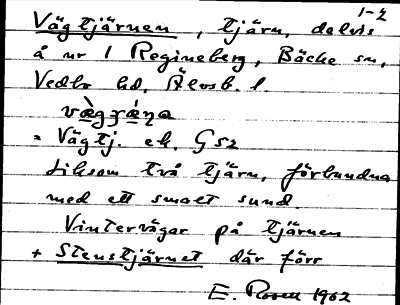 1-2
Vägtjärnen, tjärn, delvis
å nr 1 Regineberg, Bäcke sn,
Vedbo hd, Älvsb. l.
= Vägtj. ek. G52
Liksom två tjärn, förbundna
med ett smalt sund.
Vintervägar på tjärnen
+ Stenstjärnet där förr
E. Rosen 1962